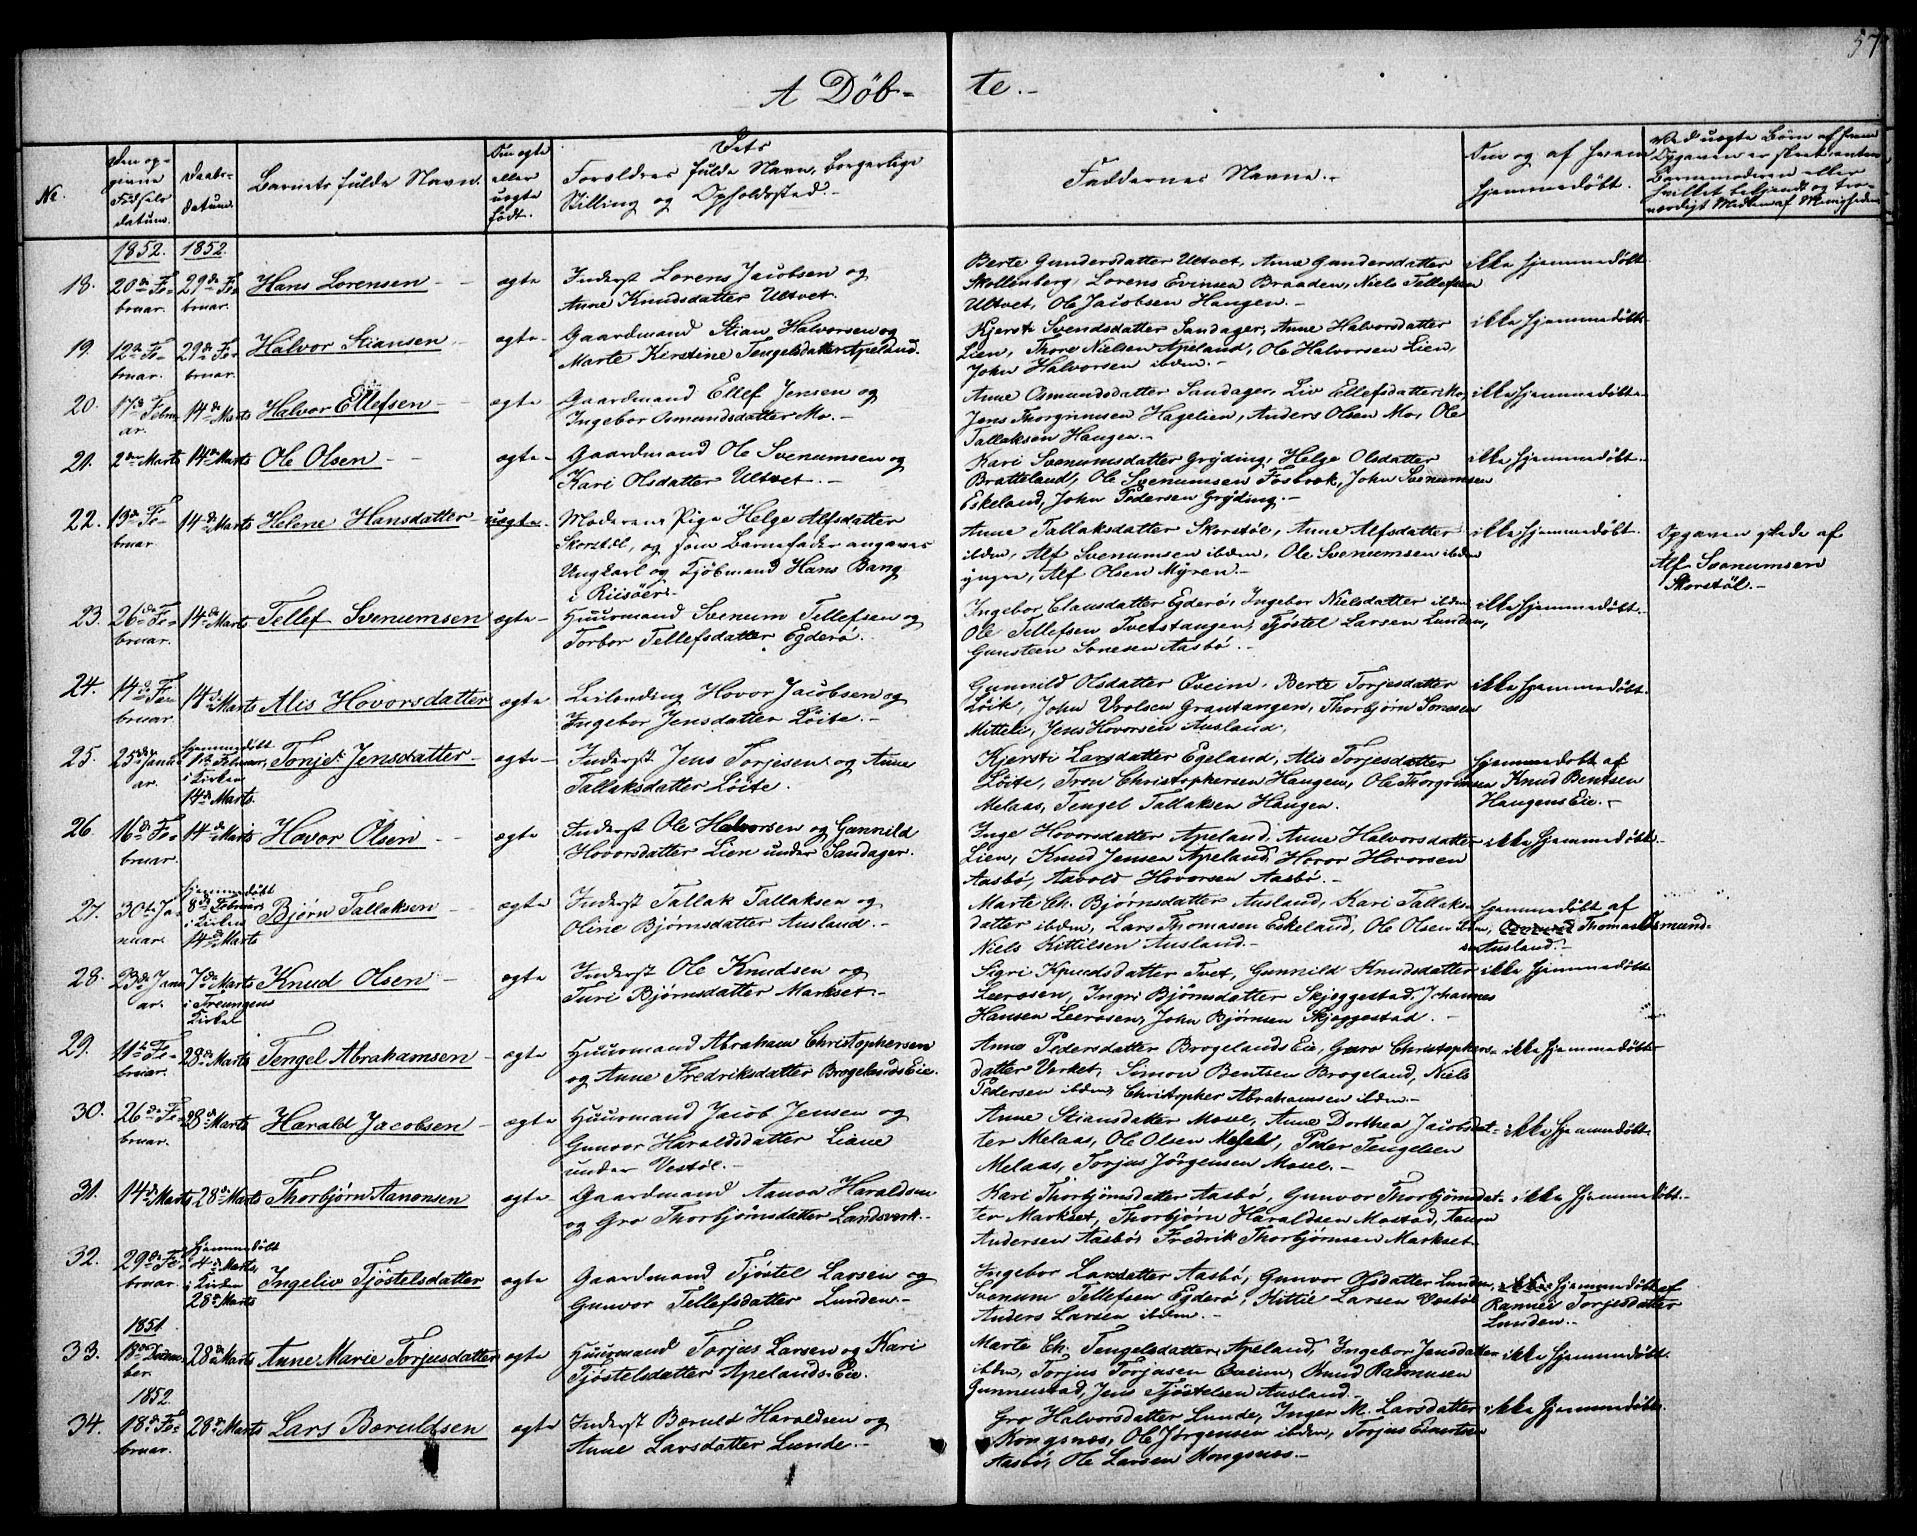 57
A Døb- te.-
No.
Den op-
givne
Fødsels
datum.
Daabs-
datum.
Barnets fulde Navn.
Om ægte
eller
uægte
født.
Dets
Forældres fulde Navn, borgerlige
Stilling og Opholdssted.-
Faddernes Navne.-
Om og af hvem
hjemmedøbt.
Ved uægte Børn af hvem
Opgaven er skeet, enten
Barnemoderen eller
hvilket bekjendt og tro-
værdigt Medlem af Menigheden
1852. 1852.
18. 20de Fe-
bruar. 29de Fe-
bruar. Hans Lorensen - ægte Inderst Lorens Jacobsen og
Anne Knudsdatter Ultvet.
Berte Gundersdatter Ultvet, Anne Gundersdatter
Skollenberg, Lorens Evinsen Braaden, Niels Tellefsen
Ultvet, Ole Jacobsen Haugen.-
ikke hjemmedøbt
19. 12te Fe-
bruar. 29de Fe-
bruar. Halvor Stiansen ægte- Gaardmand Stian Halvorsen og
Marte Kirstine Tengelsdatter Apeland.
Kjersti Svendsdatter Sandager, Anne Halvorsdatter
Lien, Thore Nielsen Apeland, Ole Halvorsen Lien,
John Halvorsen ibden.-
ikke hjemmedøbt
20. 17de Febru-
ar. 14de Marts Halvor Ellefsen ægte Gaardmand Ellef Jensen og
Ingebor Osmundsdatter Mo.-
Anne Osmundsdatter Sandager, Liv Ellefsdatter Mo,
Jens Thorgrimsen Hagelien, Anders Olsen Mo, Ole
Tallaksen Haugen.-
ikke hjemmedøbt
21. 2den Marts 14de Marts Ole Olsen - ægte- Gaardmand Ole Svenumsen og
Kari Olsdatter Ultvet.-
Kari Svenumsdatter Gryding, Helge Olsdatter
Bratteland, Ole Svenumsen Fosbræk, John Svenumsen
Eskeland, John Pedersen Gryding.-
ikke hjemmedøbt.
22. 13de Fe-
bruar. 14de Marts Helene Hansdatter uægte- Moderen Pige Helge Alfsdatter
Skorstøl, og som Barnefader angaves
Ungkarl og Kjøbmand Hans Bang
i Riisøer.-
Anne Tallaksdatter Skorstøl, Anne Alfsdatter
ibden, Alf Svenumsen ibden, Ole Svenumsen ibden
yngre, Alf Olsen Myren.-
ikke hjemmedøbt.
Opgaven skede af
Alf Svenumsen
Skorstøl.-
23. 26de Fe-
bruar. 14de Marts Tellef Svenumsen ægte- Huusmand Svenum Tellefsen og
Torbor Tellefsdatter Egderø.
Ingebor Clausdatter Egderø, Ingebor Nielsdatter ibden
Ole Tellefsen Tvetstangen, Tjøstel Larsen Lunden,
Gunsteen Sonesen Aasbø.-
ikke hjemmedøbt.
24. 14de Fe-
bruar. 14de Marts Alis Hovorsdatter ægte Leilending Hovor Jacobsen og
Ingebor Jensdatter Løite.-
Gunnild Olsdatter Øveim, Berte Torjesdatter
Løik, John Vrolsen Grautangen, Thorbjørn Sonesen
Mitteli, Jens Hovorsen Ausland,
ikke hjemmedøbt
25. 25de Janu-
ar. hjemmedøbt
1ste Februar,
i Kirken
14de Marts. Tonje Jensdatter ægte- Inderst Jens Torjesen og Anne
Tallaksdatter Løite.-
Kjersti Larsdatter Egeland, Alis Torjesdatter
Løite, Tron Christophersen Haugen, Ole Thorgrimsen
Melaas, Tengel Tallaksen Haugen.
hjemmedøbt af
Knud Bentsen
Haugens Eie.-
26. 16de Fe-
bruar. 14de Marts Hovor Olsen ægte Inderst Ole Halvorsen og Gunnild
Hovorsdatter Lien under Sandager.
Inge Hovorsdatter Apeland, Anne Halvorsdatter
Lien, Knud Jensen Apeland, Hovor Hovorsen
Aasbø, Aavold Hovorsen Aasbø.-
ikke hjemmedøbt.
27. 30te Ja-
nuar. hjemmedøbt
8de Februar
i Kirken
14de Marts Bjørn Tallaksen ægte Inderst Tallak Tallaksen og
Oline Bjørnsdatter Ausland.-
Marte Ch. Bjørnsdatter Ausland, Kari Tallaks-
datter ibden, Lars Thomasen Eskeland, Ole Olsen ibden,
Niels Kittilsen Ausland.-
hjemmedøbt af
Thomas Osmund-
sen Ausland.-
28. 23de Janu-
ar. 7de Marts
i Treungens
Kirke Knud Olsen ægte Inderst Ole Knudsen og
Turi Bjørnsdatter Markset.-
Sigri Knudsdatter Tvet, Gunnild Knudsdatter
Leerosen, Ingri Bjørnsdatter Skjeggestad, Johannes
Hansen Leerosen, John Bjørnsen Skjeggestad.-
ikke hjemmedøbt
29. 11te Fe-
bruar. 28de Marts Tengel Abrahamsen ægte Huusmand Abraham Christophersen
og Anne Fredriksdatter Brogelands Eie.
Anne Pedersdatter Brogelands Eie, Guro Christophers-
datter Verket, Simon Bentsen Brogeland, Niels
Pedersen ibden, Christopher Abrahamsen ibden.-
ikke hjemmedøbt
30. 26de Fe-
bruar. 28de Marts Harald Jacobsen ægte Huusmand Jacob Jensen og
Gunvor Haraldsdatter Liane
under Vestøl.-
Anne Stiansdatter Mosel, Anne Dorthea Jacobsdat-
ter Melaas, Ole Olsen Mosel, Peder Tengelsen
Melaas, Torjus Jørgensen Mosel.-
ikke hjemmedøbt
31. 14de Marts 28de Marts Thorbjørn Aanonsen ægte- Gaardmand Aanon Haraldsen
og Gro Thorbjørnsdatter Landsverk.-
Kari Thorbjørnsdatter Aasbø, Gunvor Thorbjørnsdat-
ter Markset, Thorbjørn Haraldsen Mostad, Aanon
Andersen Aasbø, Fredrik Thorbjørnsen Markset.
ikke hjemmedøbt.
32. 29de Fe-
bruar. hjemmedøbt
4de Marts
i Kirken
28de Marts Ingeliv Tjøstelsdatter ægte Gaardmand Tjøstel Larsen og
Gunvor Tellefsdatter Lunden.-
Ingebor Larsdatter Aasbø, Gunvor Olsdatter Lunden,
Svenum Tellefsen Egderø, Kittil Larsen Vestøl
Anders Larsen ibden.-
ikke hjemmedøbt af
Rannei Torjesdatter
Lunden.-
1851.
33. 18de Decem-
ber. 28de Marts Anne Marie Torjusdatter ægte Huusmand Torjus Larsen og Kari
Tjøstelsdatter Apelands Eie.
Marte Ch. Tengelsdatter Apeland, Ingebor Jensdatter
ibden, Torjus Torjusen Øveim, Knud Rasmusen
Gunnestad, Jens Tjøstelsen Ausland.
ikke hjemmedøbt.
1852.
34. 18de Fe-
bruar. 28de Marts Lars Beruldsen ægte Inderst Bæruld Haraldsen og
Anne Larsdatter Lunde.-
Gro Halvorsdatter Lunde, Inger M. Larsdatter
Kongsnæs, Ole Jørgensen ibden, Torjus Einertsen
Aasbø, Ole Larsen Kongsnæs.-
ikke hjemmedøbt.